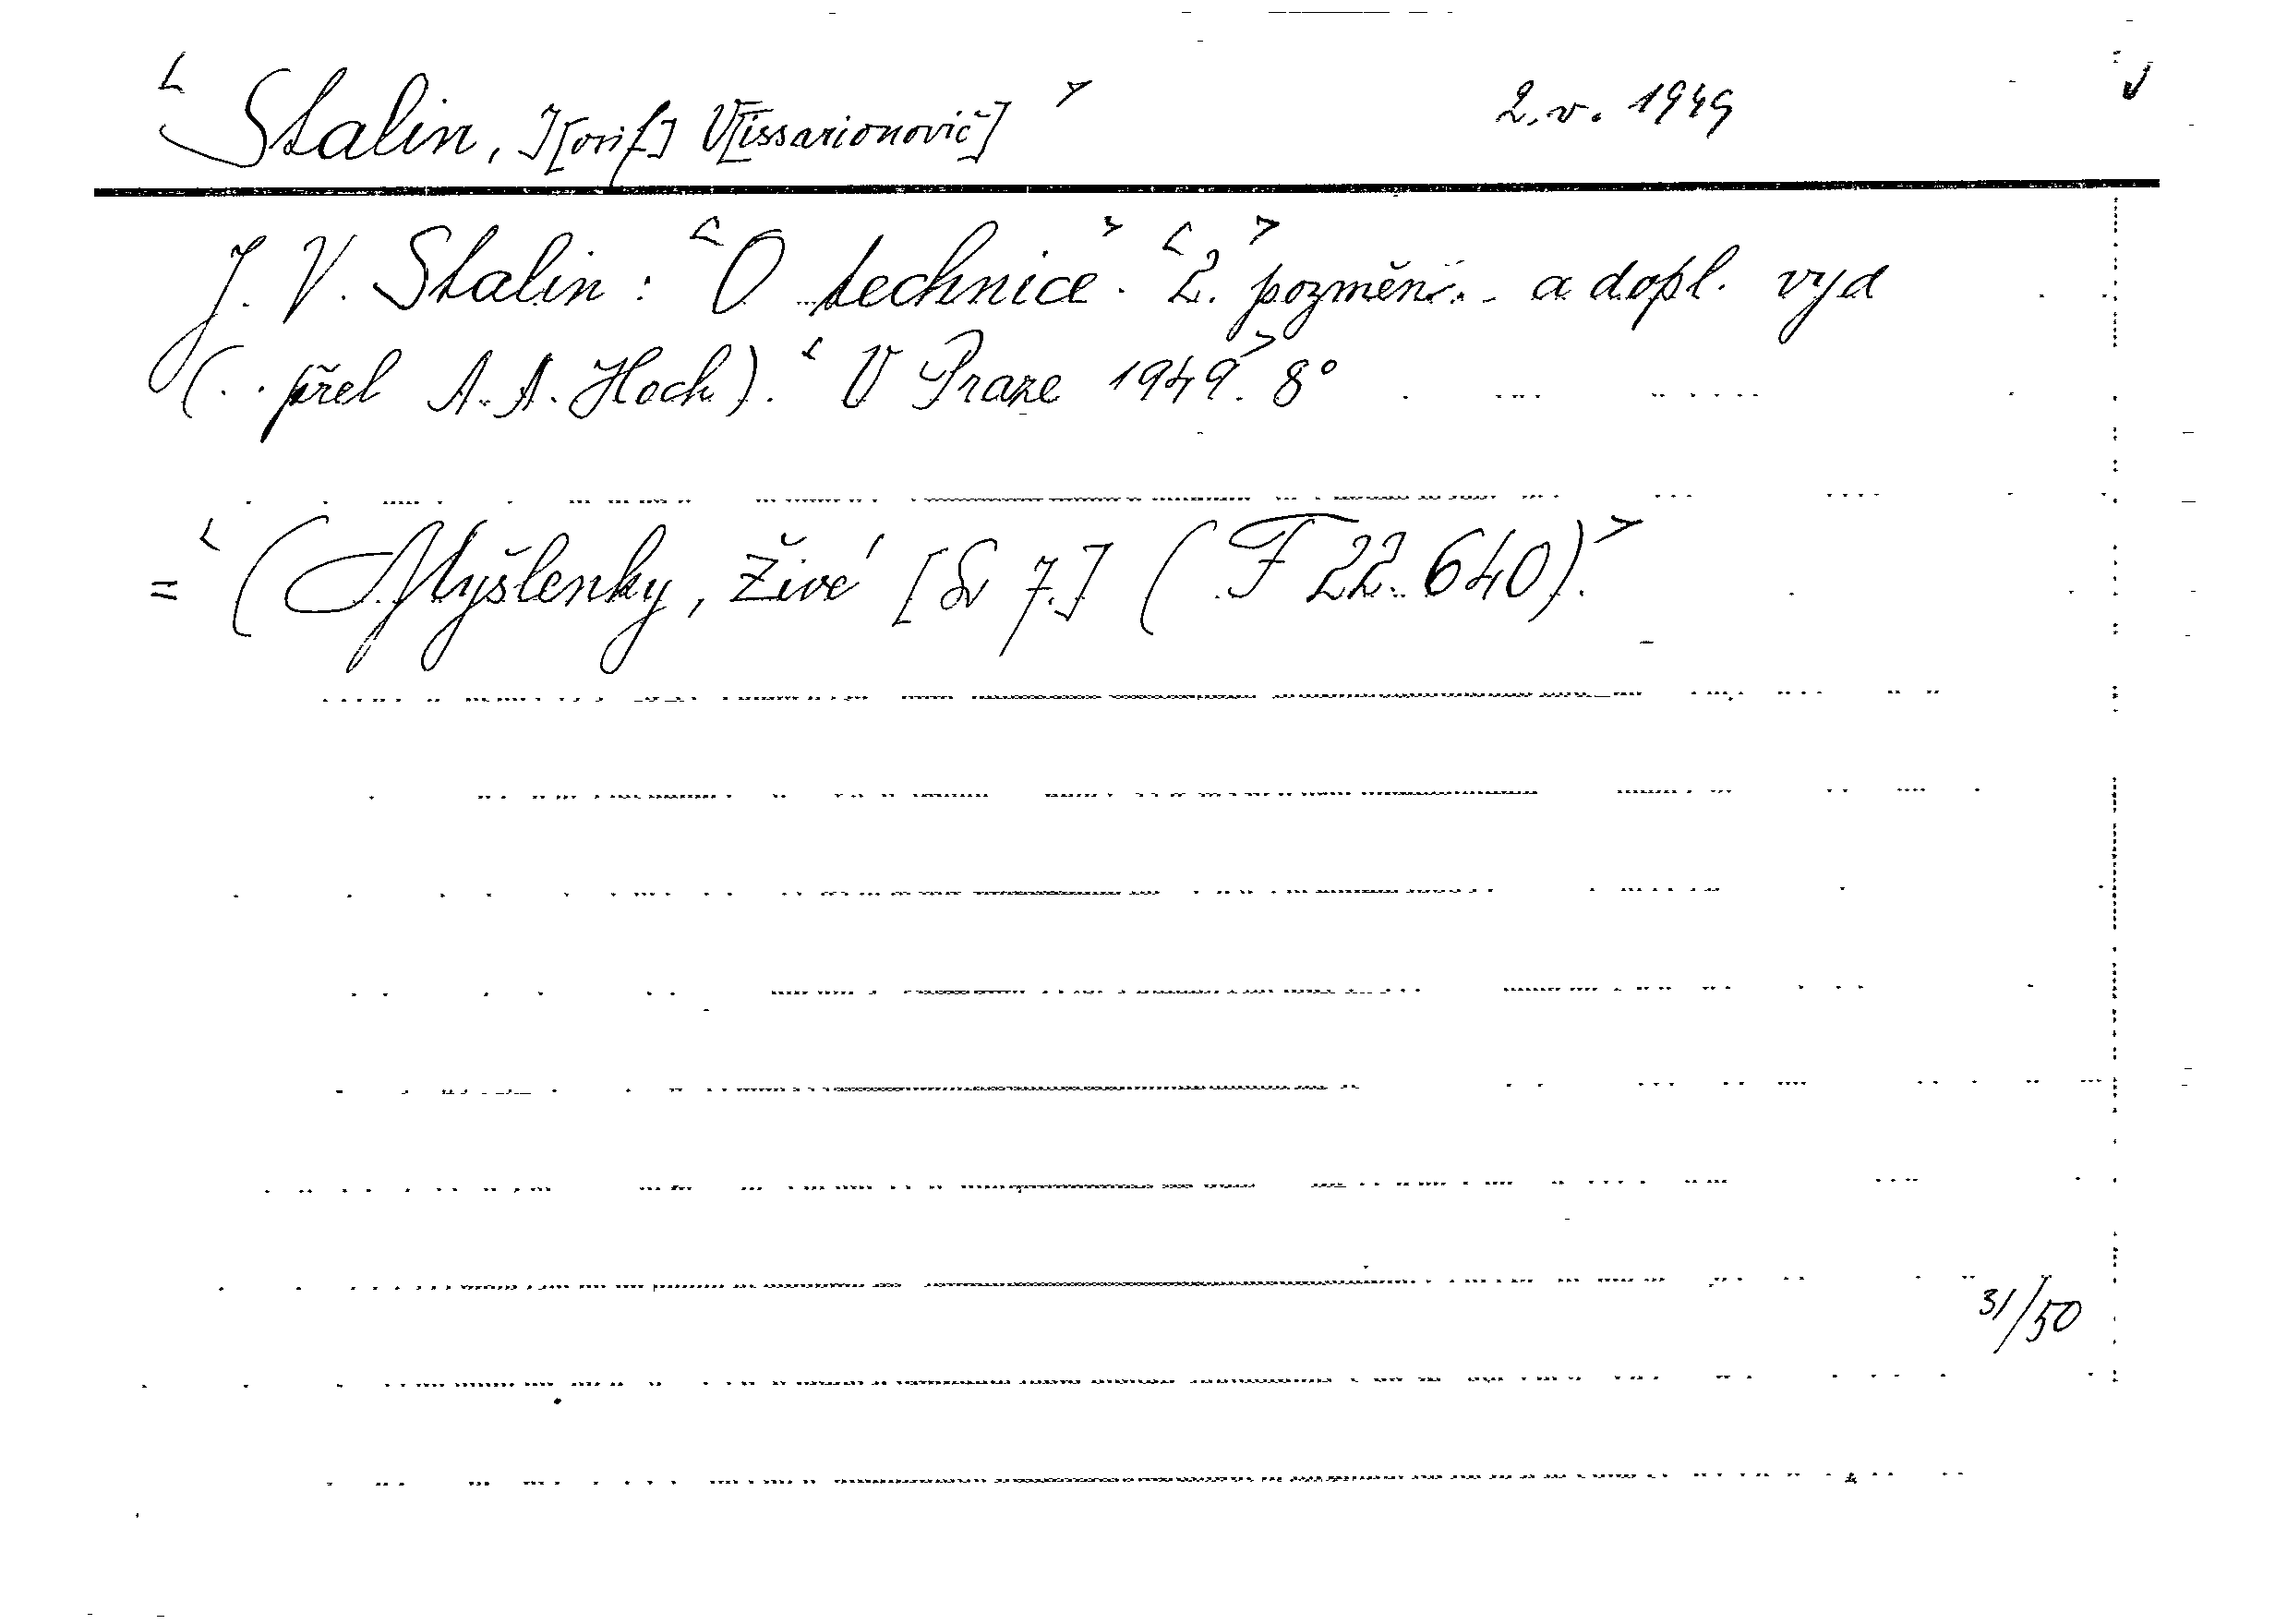 < Stalin, J[osif] V[issarionovič] > 2. v. 1949
J. V. Stalin : < O technice > . < 2. > pozměn. a dopl. vyd
( . . přel A. A. Hoch ). < V Praze 1949 > . 8°
= < ( Myšlenky, živé [Sv 7.] ( F 22.640 ) > .
31/50